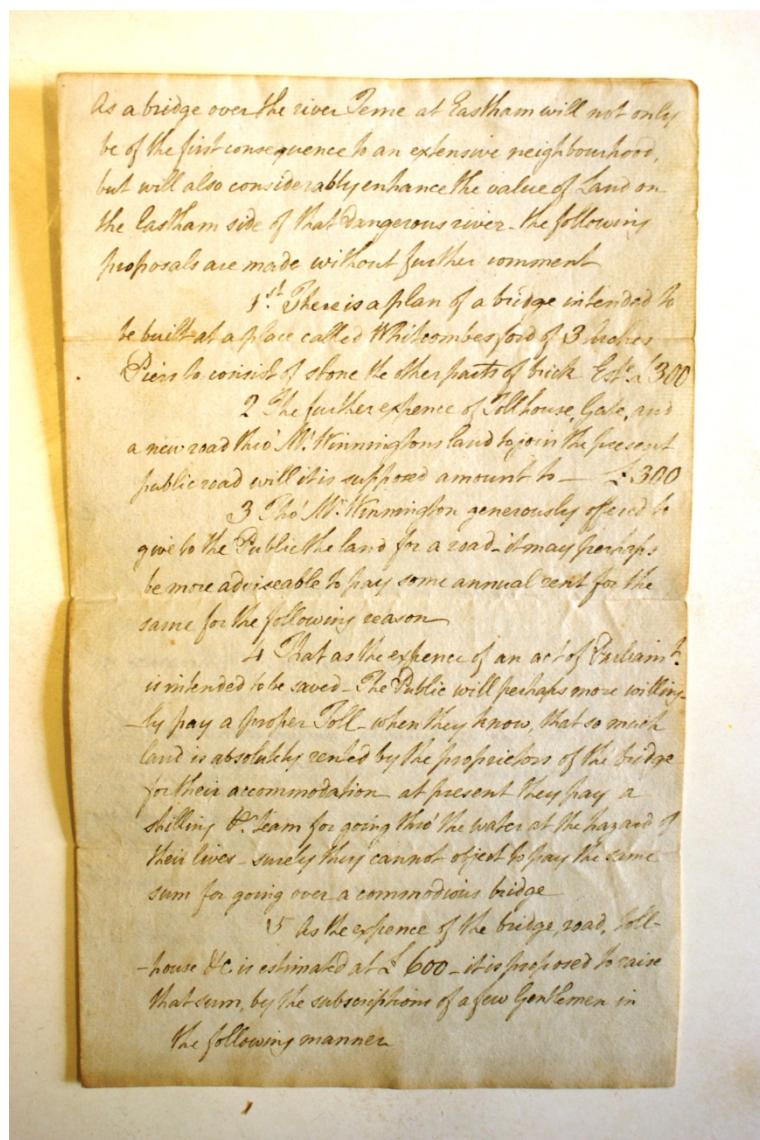 As a bridge over the river Teme at Eastham will not only
be of the first consequence to an extensive neighbourhood,
but will also considerably enhance the value of Land on
the Eastham side of that dangerous river - the following
proposals are made without further comment
1st. There is a plan of a bridge intended to
be built at a place called Whitcombesford of 3 Arches
Piers to consist of stone the other parts of brick Est. £300
2 The further expence of Tollhouse, Gate, and
a new road thro' Mr. Winningtons land to join the present
public road will it is supposed amount to — £300
3 Tho' Mr. Winnington generously offered to
give to the Public the land for a road - it may perhaps
be more adviseable to pay some annual rent for the
same for the following reason
4 That as the expence of an act of Parliamt.
is intended to be saved - The Public will perhaps more willing-
-ly pay a proper Toll - when they know, that so much
land is absolutely rented by the proprietors of the bridge
for their accommodation at present they pay a
shilling team for going thro' the water at the hazard of
their lives - surely they cannot object to pay the same
sum for going over a commodious bridge
5 As the expence of the bridge, road, toll-
-house &c is estimated at £600 - it is proposed to raise
that sum, by the subscriptions of a few Gentlemen in
the following manner